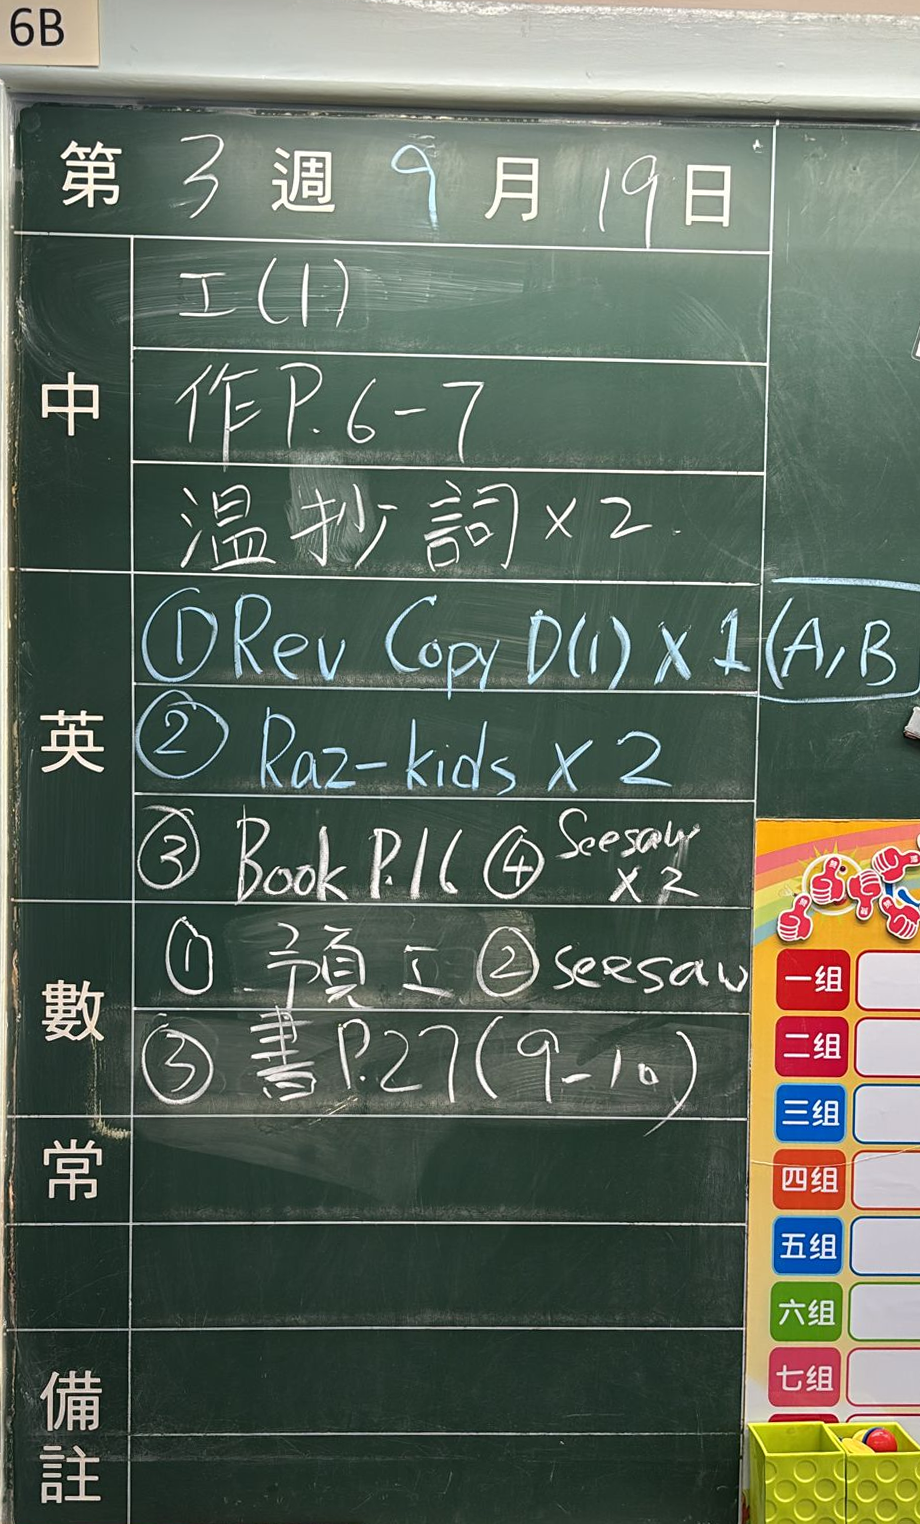 6B
第 3 週 9 月 19 日
中
工(1)
作P.6-7
温抄詞×2
英
①Rev Copy D(1) x 1 (A, B
② Raz-kids x 2
③ Book P.16 ④ Seesaw x 2
數
① 預工 ② seesaw
③ 書P.27(9-10)
常
備註
一组
二组
三组
四组
五组
六组
七组